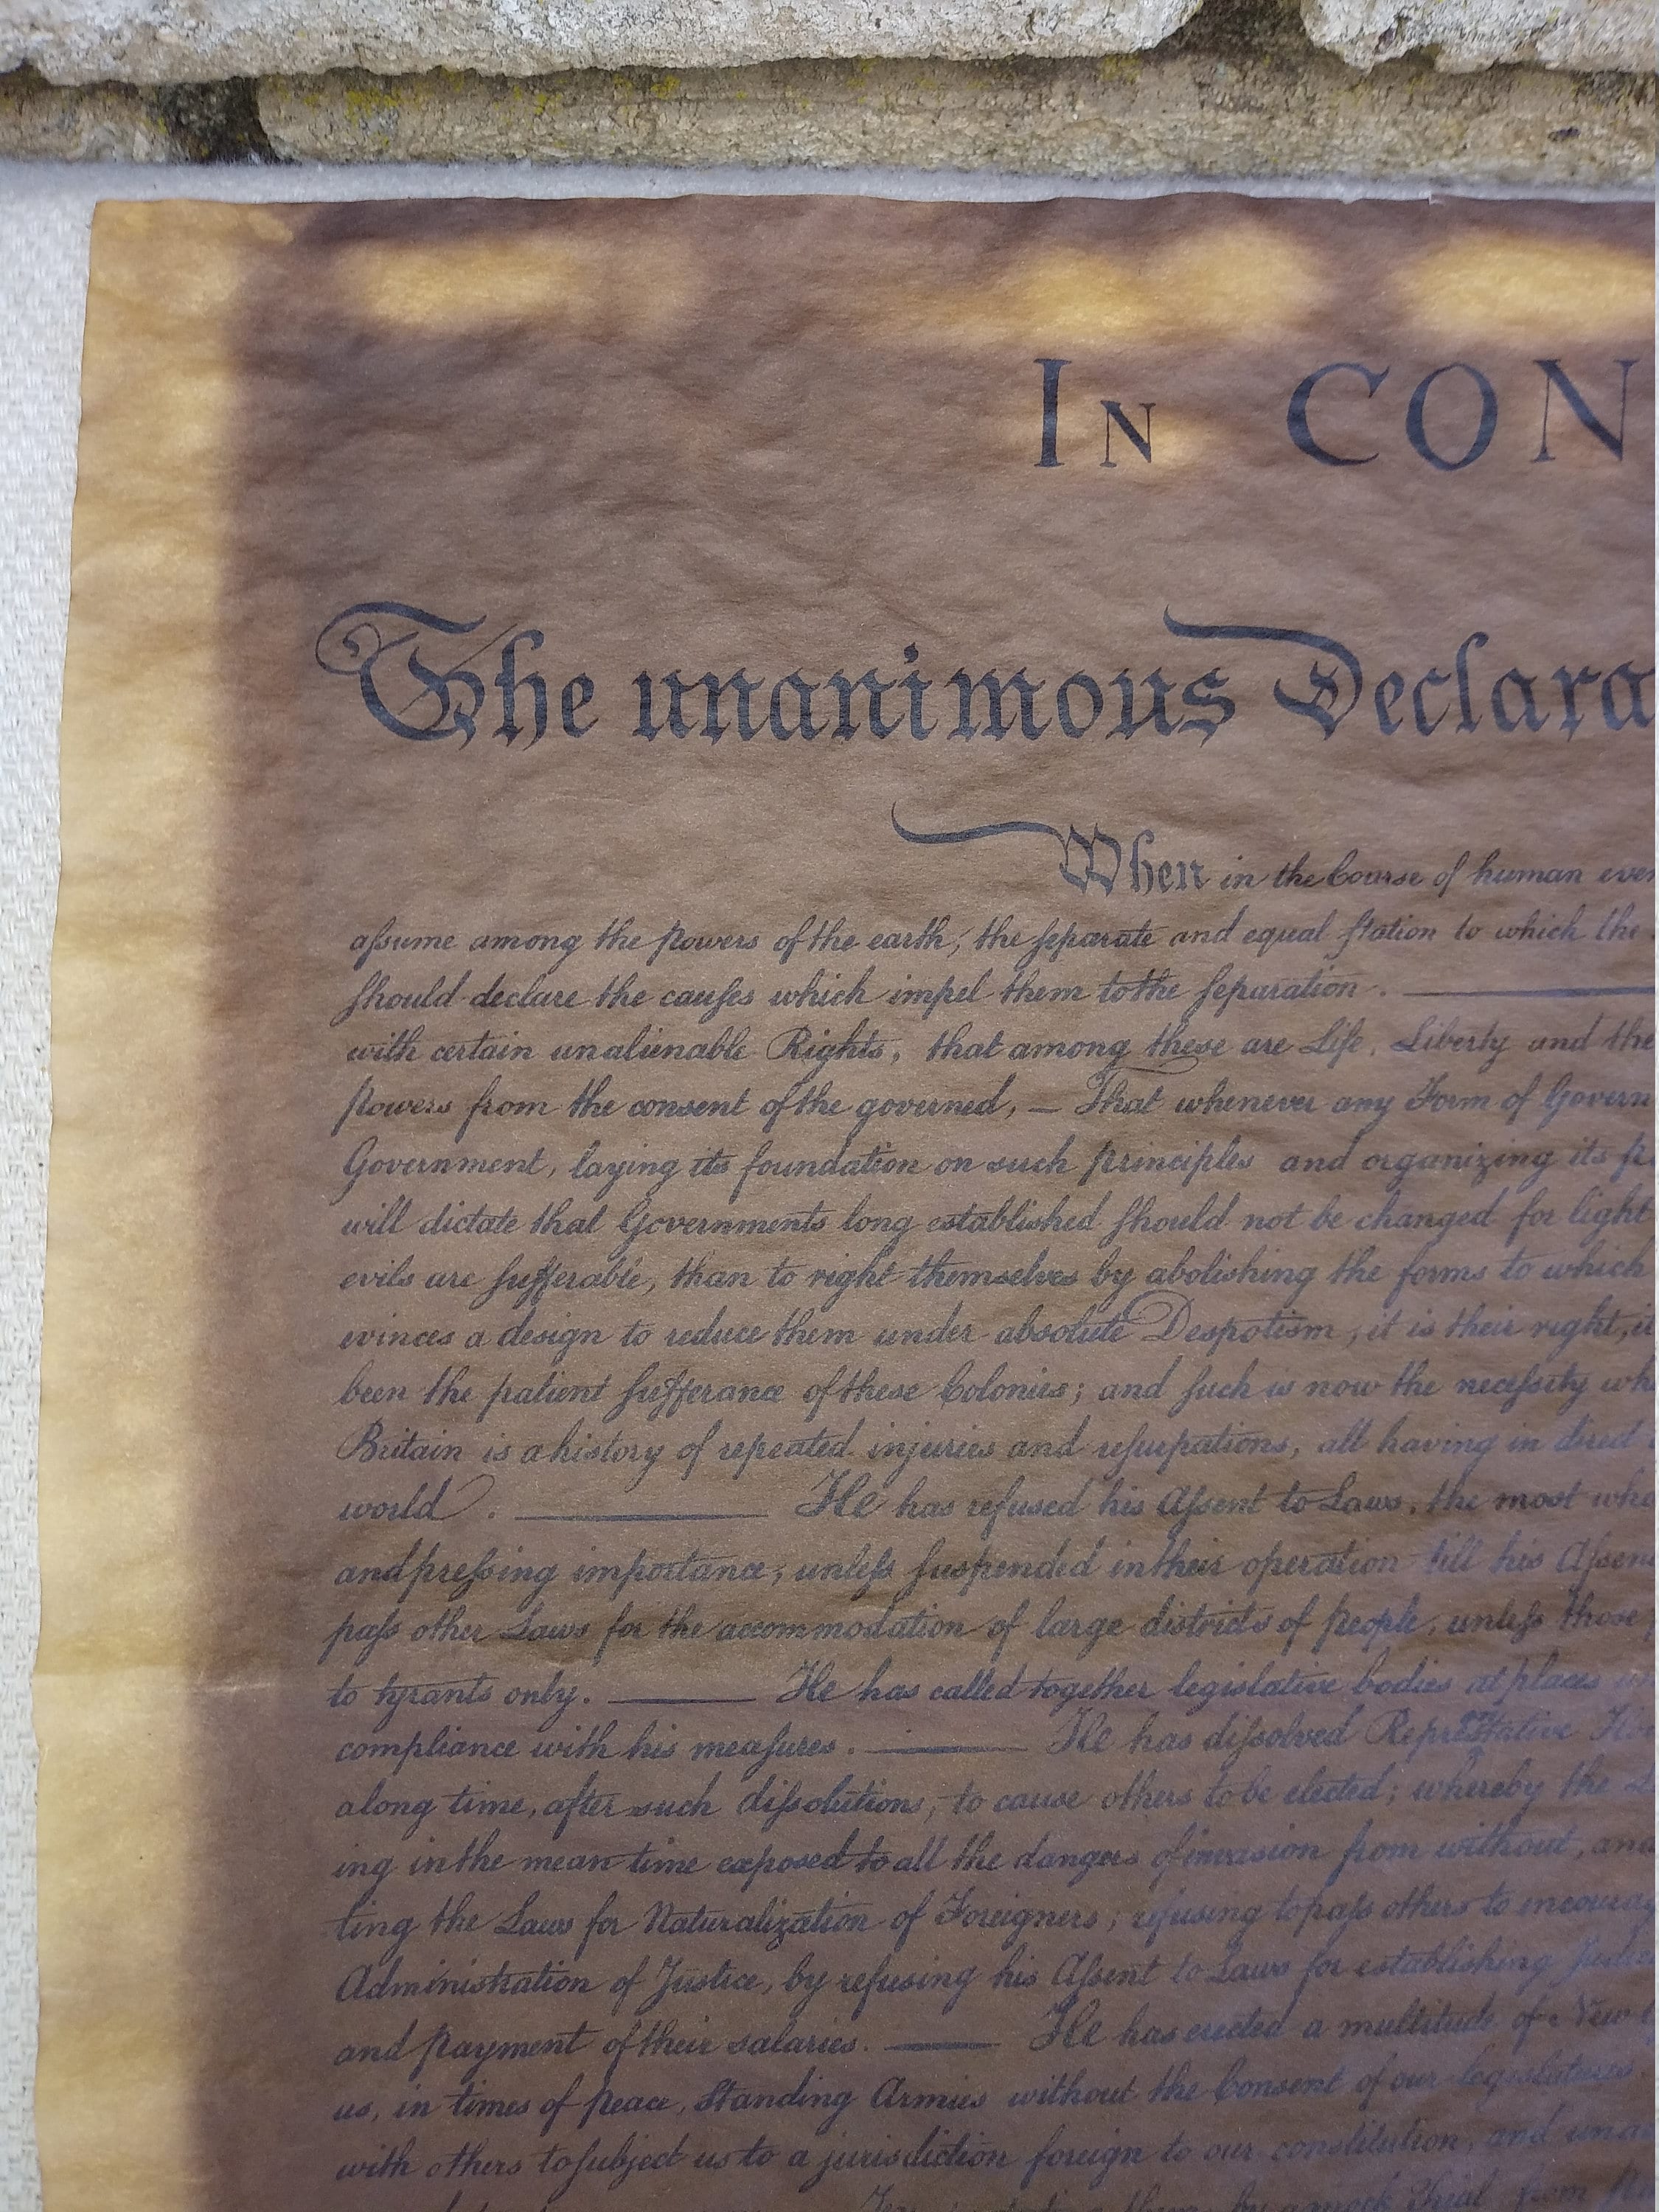 In CON
The unanimous Declara
When in the Course of human even
aſsume among the powers of the earth, the ſeparate and equal ſtation to which the
ſhould declare the cauſes which impel them to the ſeparation.
with certain unalienable Rights, that among these are Life, Liberty and the
powers from the consent of the governed, — That whenever any Form of Govern
Government, laying its foundation on such principles and organizing its p
will dictate that Governments long established ſhould not be changed for light
evils are ſufferable, than to right themselves by abolishing the forms to which
evinces a design to reduce them under absolute Despotism, it is their right, it
been the patient ſufferance of these Colonies; and ſuch is now the neceſsity wh
Britain is a history of repeated injuries and uſurpations, all having in direct
world. — He has refused his Aſsent to Laws, the most who
and preſsing importance, unleſs ſuspended in their operation till his Aſsen
paſs other Laws for the accommodation of large districts of people, unleſs those
to tyrants only. — He has called together legislative bodies at places un
compliance with his meaſures. — He has diſsolved Repreſtative Ho
along time, after such diſsolutions, to cause others to be elected; whereby the
ing in the mean time exposed to all the dangers of invasion from without, and
ting the Laws for Naturalization of Foreigners; refusing to paſs others to encourag
Administration of Justice, by refusing his Aſsent to Laws for establishing Judici
and payment of their salaries. — He has erected a multitude of New
us, in times of peace, Standing Armies without the Consent of our legislatures.
with others to ſubject us to a jurisdiction foreign to our constitution, and unac
by a mock Trial, from